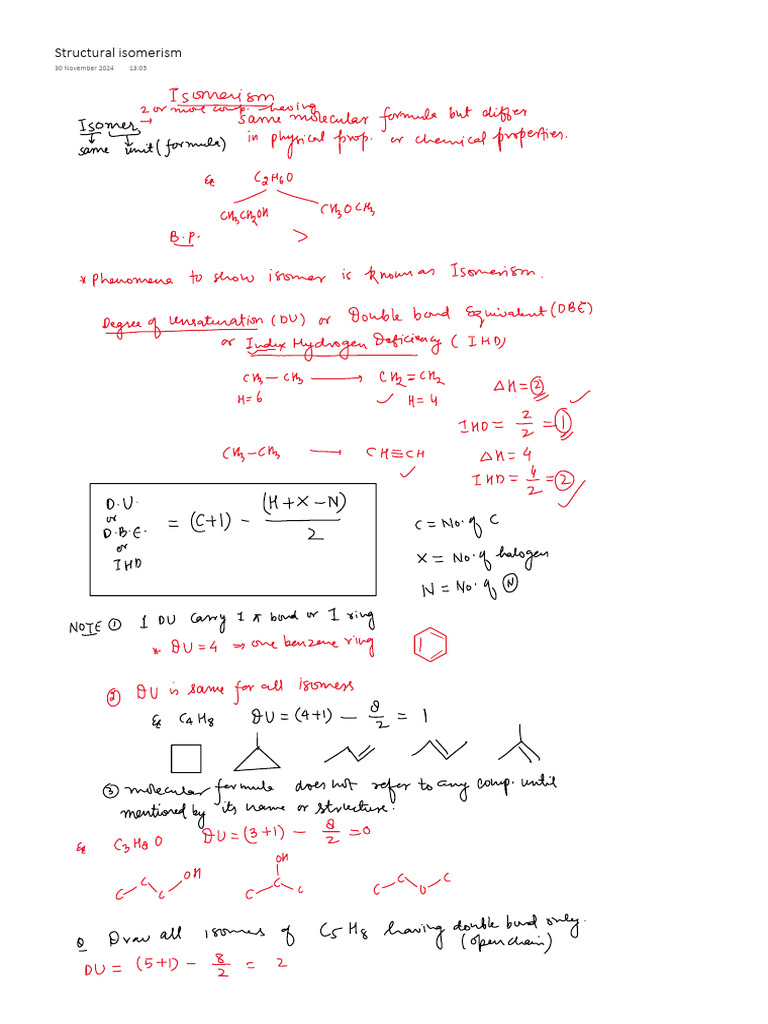 Structural isomerism
30 November 2024 13:05
Isomerism
2 or more comp. having
Isomer → same molecular formula but differ
same unit (formula) in physical prop. or chemical properties.
Ex C2H6O
CH3CH2OH CH3OCH3
B.P. >
* Phenomena to show isomer is known as Isomerism.
Degree of Unsaturation (DU) or Double bond Equivalent (DBE)
or Index Hydrogen Deficiency (IHD)
CH3–CH3 → CH2=CH2 ΔH=2
H=6 ✓ H=4
IHD = 2/2 = 1 ✓
CH3–CH3 → CH≡CH ΔH=4
✓ IHD = 4/2 = 2 ✓
D.U. or D.B.E. or IHD = (C+1) – (H+X–N)/2
C = No. of C
X = No. of halogen
N = No. of N
NOTE ① 1 DU carry 1 π bond or 1 ring
* DU=4 ⇒ one benzene ring
② DU is same for all isomers
Ex C4H8 DU = (4+1) – 8/2 = 1
③ molecular formula does not refer to any comp. until
mentioned by its name or structure.
Ex C3H8O DU = (3+1) – 8/2 = 0
C C C OH
OH C C C
C C O C
Q Draw all isomers of C5H8 having double bond only.
(open chain)
DU = (5+1) – 8/2 = 2